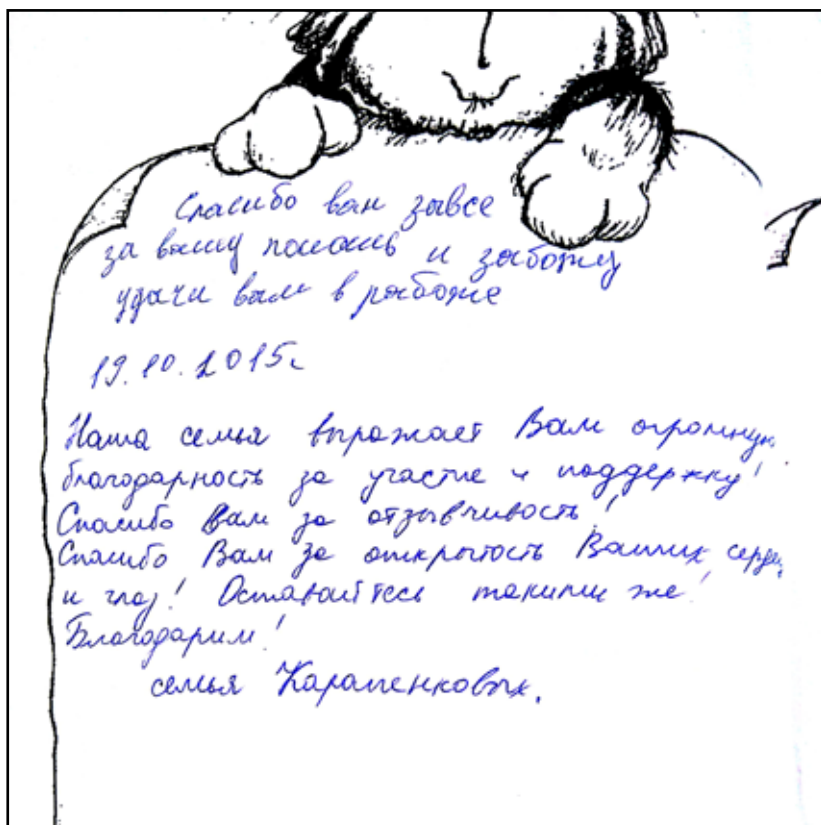 Спасибо вам завсе
за вашу помощь и заботу
удачи вам в работе
19.10.2015г
Наша семья выражает Вам огромную
благодарность за участие и поддержку!
Спасибо Вам за отзывчивость!
Спасибо Вам за открытость Ваших сердец
и глаз! Оставайтесь такими же!
Благодарим!
семья